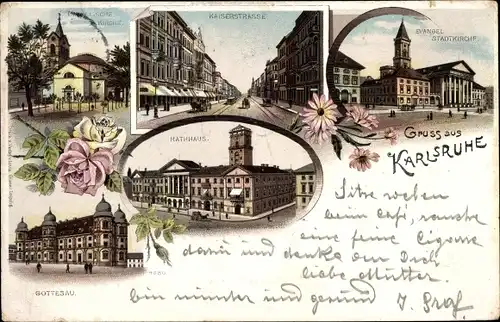 KAISERSTRASSE.
EVANGEL.
STADTKIRCHE.
KIRCHE.
RATHHAUS.
Gruss aus
KARLSRUHE
GOTTESAU.
Sitze neben
beim Café, rauche
eine feine Cigarre
darin und denke an Dich
liebe Mutter.
bin munter und gesund
J. Graf